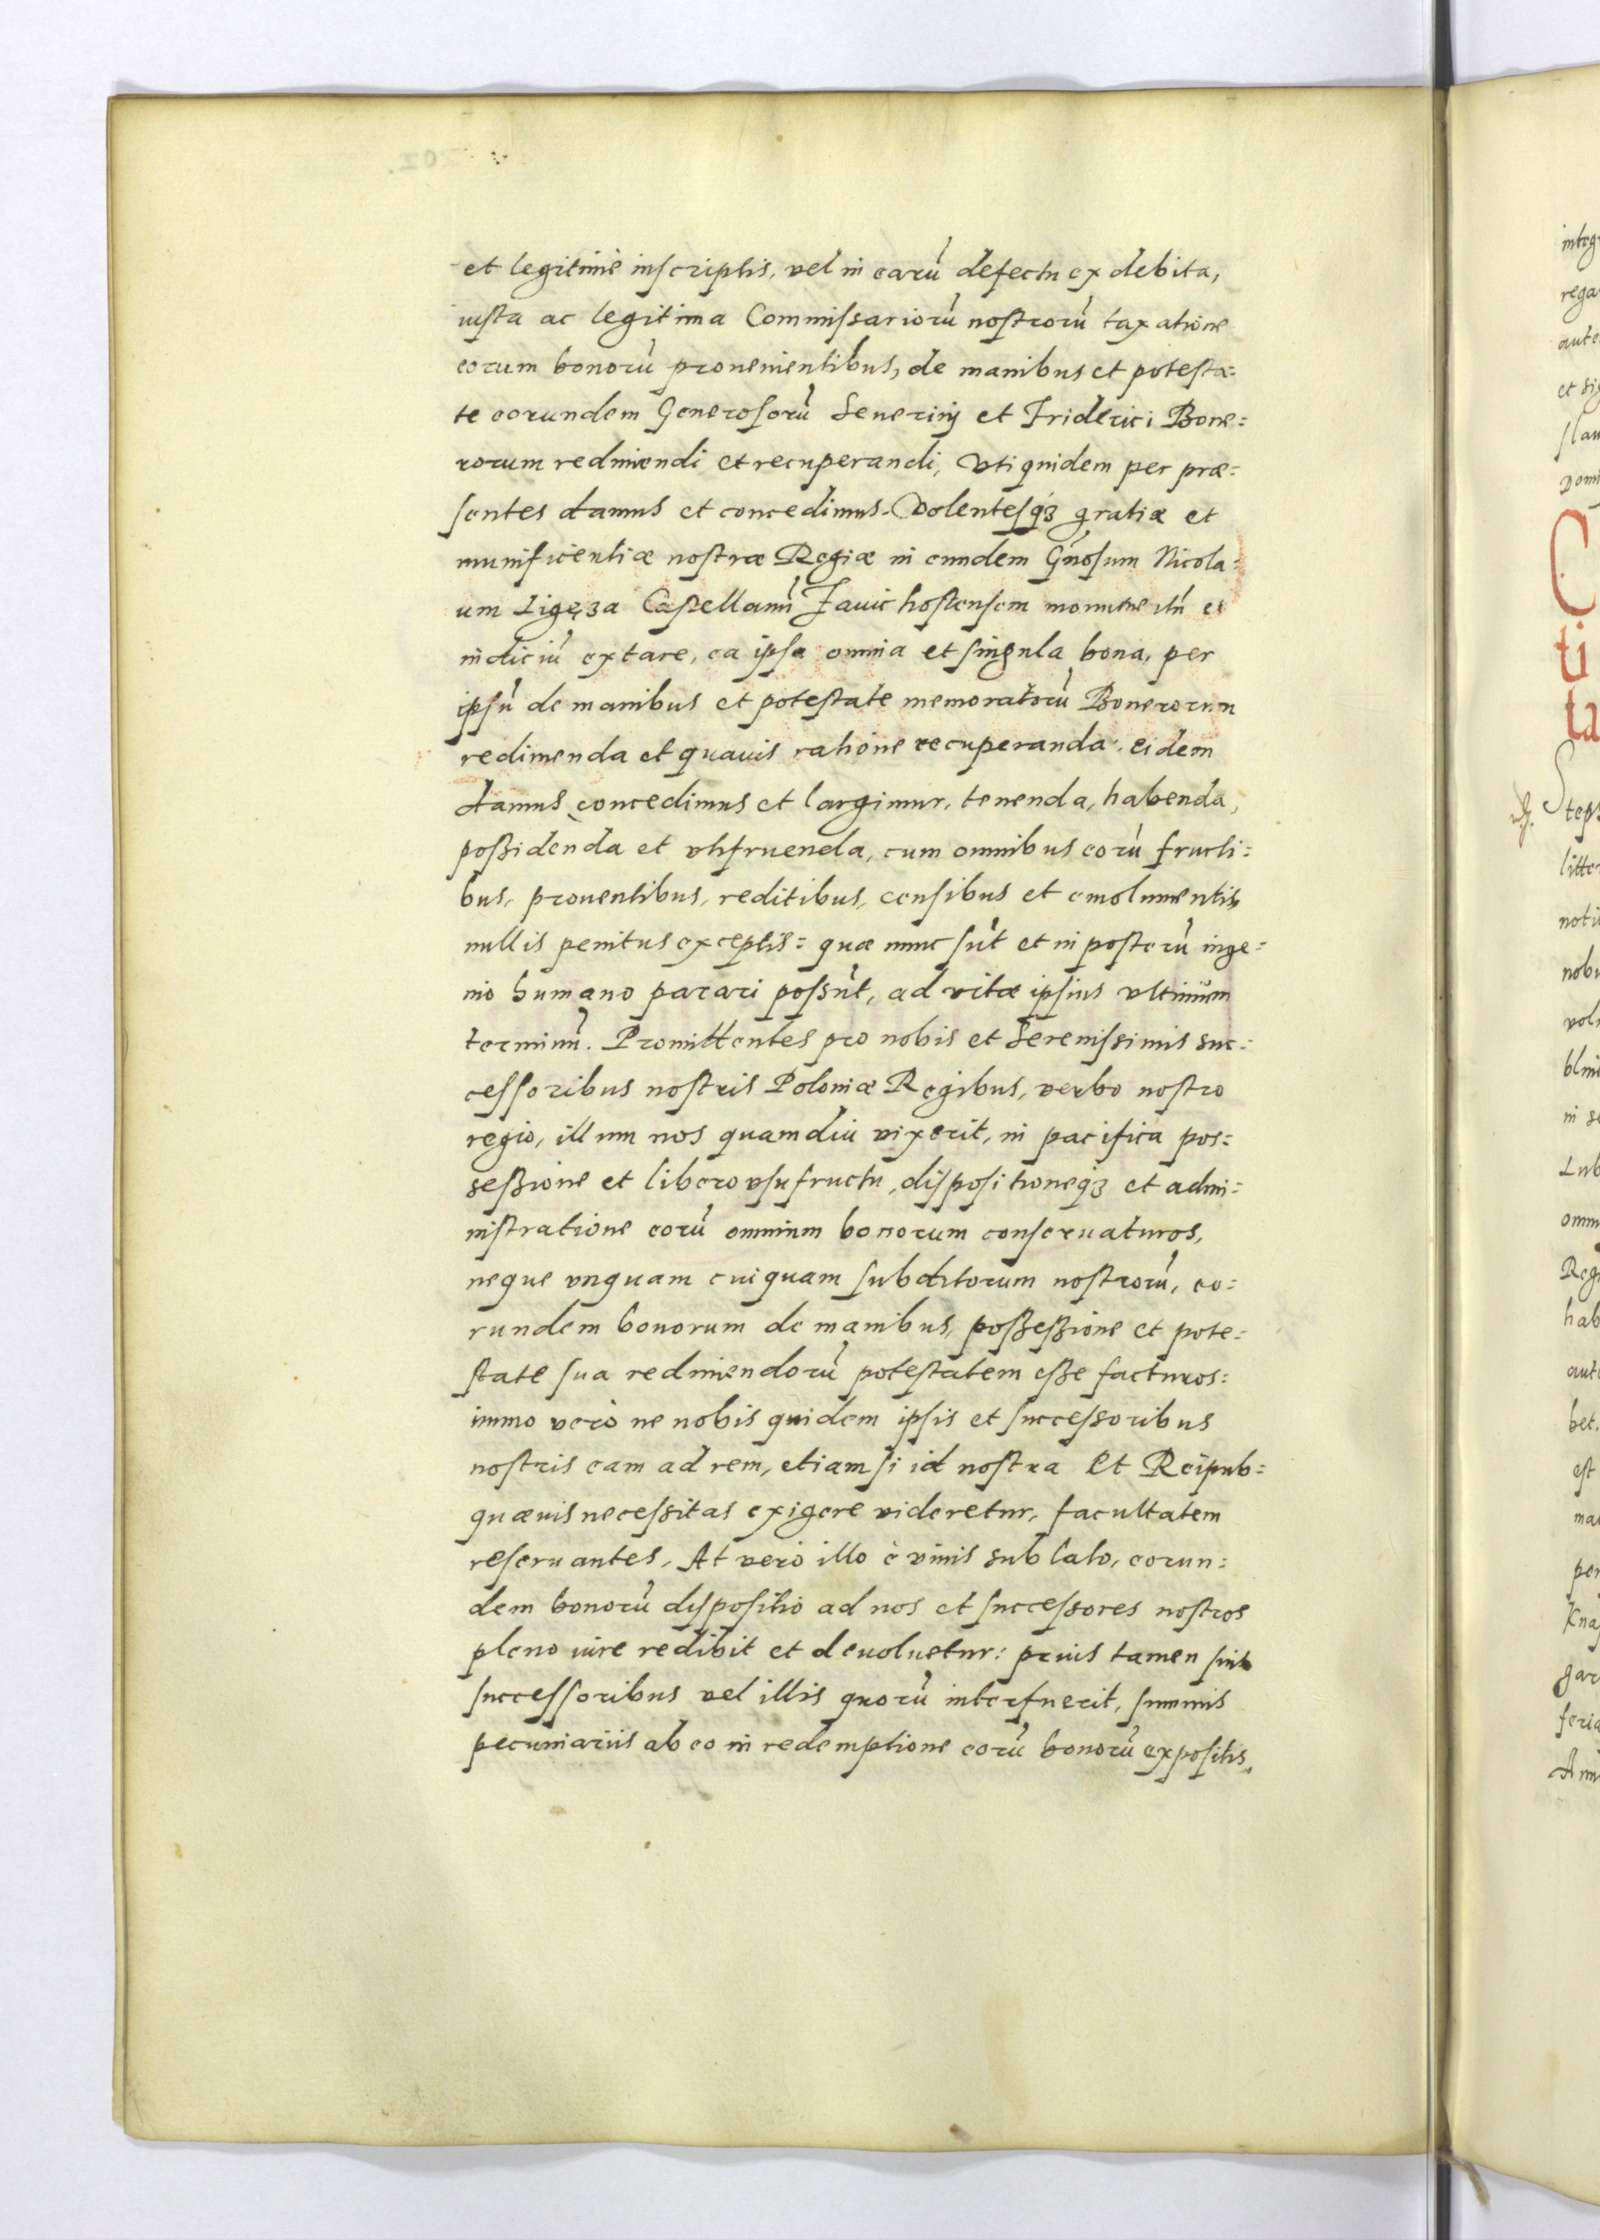 et legitime inscriptis, vel in earū defectu ex debita,
iusta ac legitima Commissariorū nostrorū taxatione
eorum bonorū prouenientibus, de manibus et potesta=
te eorundem Generosorū Seuerinj et Friderici Bone=
rorum redimendi et recuperandi, vti quidem per præ=
sentes damus et concedimus. Volentesq₃ gratiæ et
munificentiæ nostræ Regiæ in eundem Gn̄osum Nicola=
um Ligęza Castellanū Zauichostensem monumentū et
indiciū extare, ea ipsa omnia et singula bona, per
ipsū de manibus et potestate memoratorū Bonerorum
redimenda et quauis ratione recuperanda, eidem
damus concedimus et largimur, tenenda, habenda,
possidenda et vtifruenda, cum omnibus eorū fructi=
bus, prouentibus, reditibus, censibus et emolumentis
nullis penitus exceptis: quæ nunc sūt et in posterū inge=
nio humano parari possūt, ad vitæ ipsius vltimum
terminū. Promittentes pro nobis et Serenissimis suc=
cessoribus nostris Poloniæ Regibus, verbo nostro
regio, illum nos quamdiu vixerit, in pacifica pos=
sessione et libero vsufructu, dispositioneq₃ et admi=
nistratione eorū omnium bonorum conseruaturos,
neque vnquam cuiquam subditorum nostrorū, eo=
rundem bonorum de manibus, possessione et pote=
state sua redimendorū potestatem esse facturos:
immo verò ne nobis quidem ipsis et successoribus
nostris eam ad rem, etiam si id nostra et Reipub=
quæuis necessitas exigere videretur, facultatem
reseruantes. At verò illo è viuis sublato, eorun=
dem bonorū dispositio ad nos et successores nostros
pleno iure redibit et deuoluetur: prius tamen suis
successoribus vel illis quorū interfuerit, summis
pecuniariis ab eo in redemptione eorū bonorū expositis,
C
ti
ta